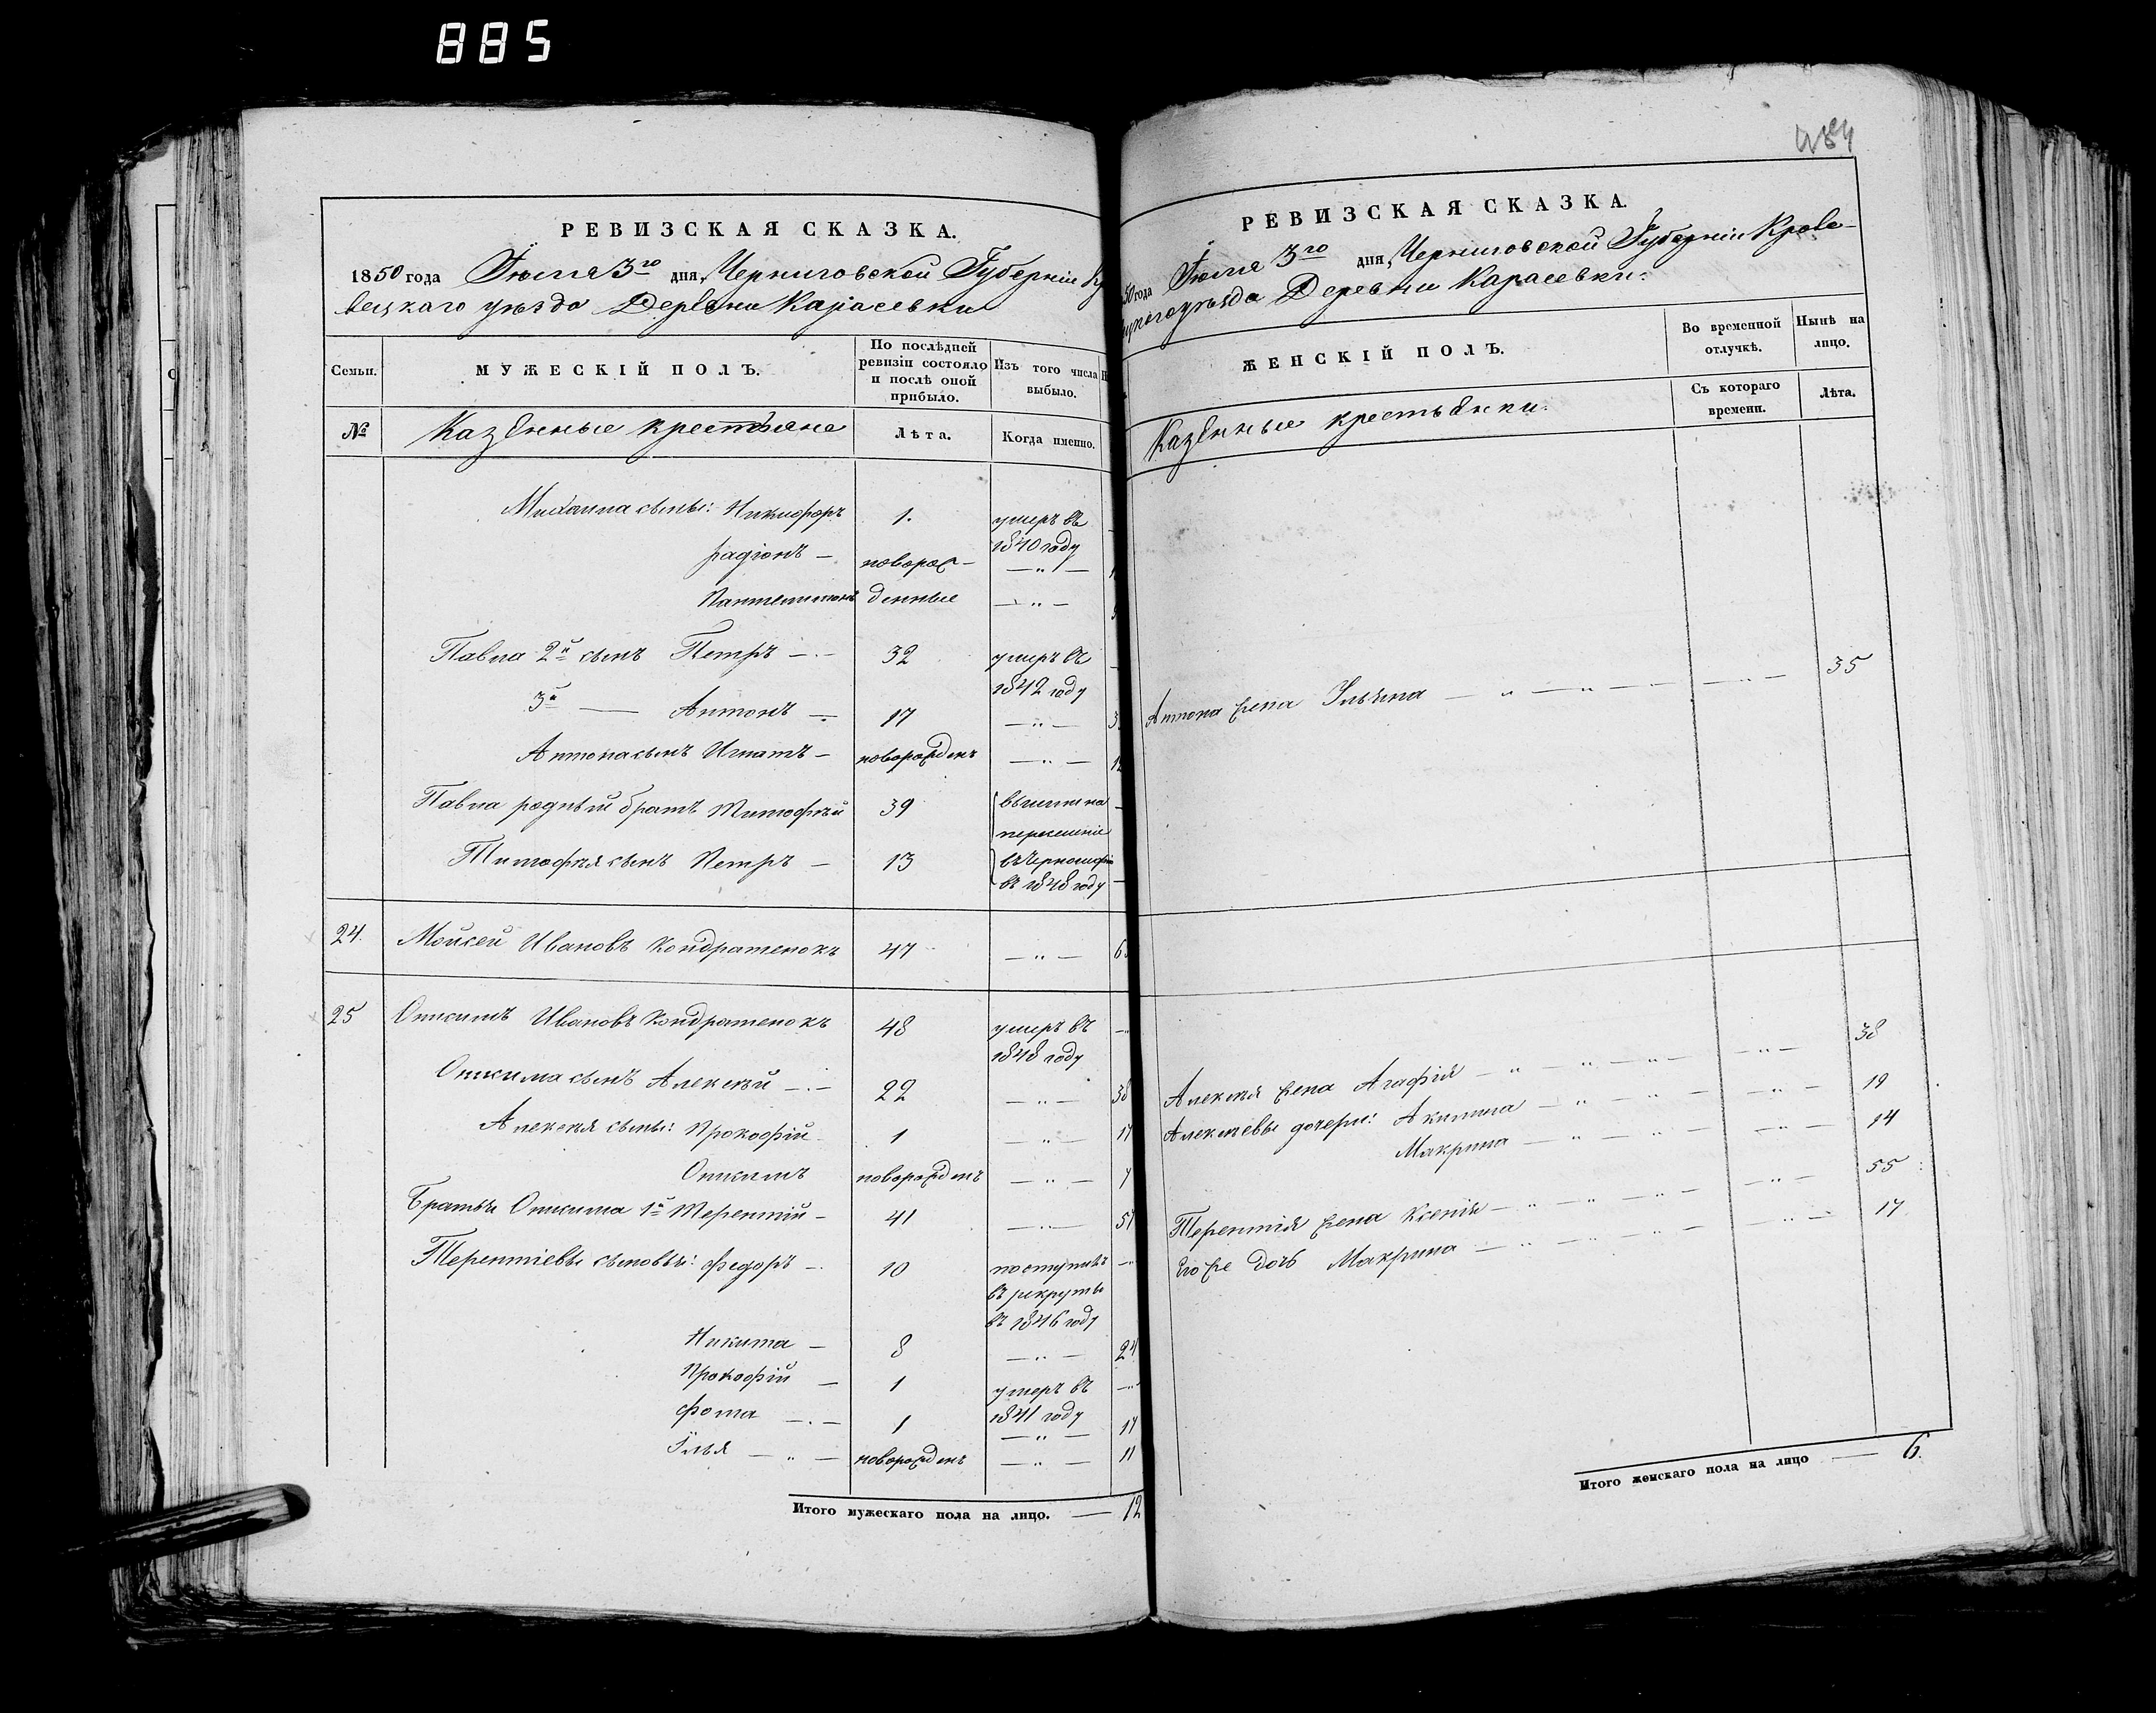 885
РЕВИЗСКАЯ СКАЗКА.
1850 года Іюля 3го дня, Черниговской Губерніи
вецкаго уѣзда Деревни Карасевки
Семьи.
МУЖЕСКІЙ ПОЛЪ.
По послѣдней ревизіи состояло и послѣ оной прибыло.
Изъ того числа выбыло.
№
Казенные крестьяне
Лѣта.
Когда именно.
Михаила сыны: Никифоръ 1. умеръ въ
1840 году
Радіонъ — новорож- — „ —
Пантелимонъ денные — „ —
Павла 2й сынъ Петръ — 32 умеръ въ
1842 году
3й — Антонъ — 17 — „ —
Антона сынъ Игнатъ — новорожденъ — „ —
Павла родный братъ Тимофѣй 39
переселеніе
Тимофѣя сынъ Петръ — 13
въ 1848 году
24. Мойсей Ивановъ Кондратенокъ 47 — „ —
25 Онисимъ Ивановъ Кондратенокъ 48 умеръ въ —
1848 году
Онисима сынъ Алексѣй — 22 — „ — 38
Алексѣя сыны: Прокофій 1 — „ — 17
Онисимъ новорожденъ — „ — 7
Братья Онисима 1й Терентій — 41 — „ — 57
Терентіевы сыновья: Федоръ — 10 поступилъ —
въ рекруты
въ 1846 году
Никита — 8 — „ — 24
Прокофій — 1 умеръ въ —
1841 году
Фома — 1 — „ — 17
Илья — „ — новорожденъ — „ — 11
Итого мужескаго пола на лицо. — 12
РЕВИЗСКАЯ СКАЗКА.
50 года Іюля 3го дня, Черниговской Губерніи Кроле-
уѣзда Деревни Карасевки.
ЖЕНСКІЙ ПОЛЪ.
Во временной отлучкѣ.
Нынѣ на лицо.
Казенные крестьянки.
Съ котораго времени.
Лѣта.
Антона жена Ульяна — „ — „ — — „ — 35
Алексѣя жена Агафія — „ — „ — — „ — 38
Алексѣевы дочери: Акилина — „ — „ — — „ — 19
Макрина — „ — „ — — „ — 14
Терентія жена Ксенія — „ — „ — — „ — 55
Его же дочь Макрина — „ — „ — „ — 17
Итого женскаго пола на лицо — 6.